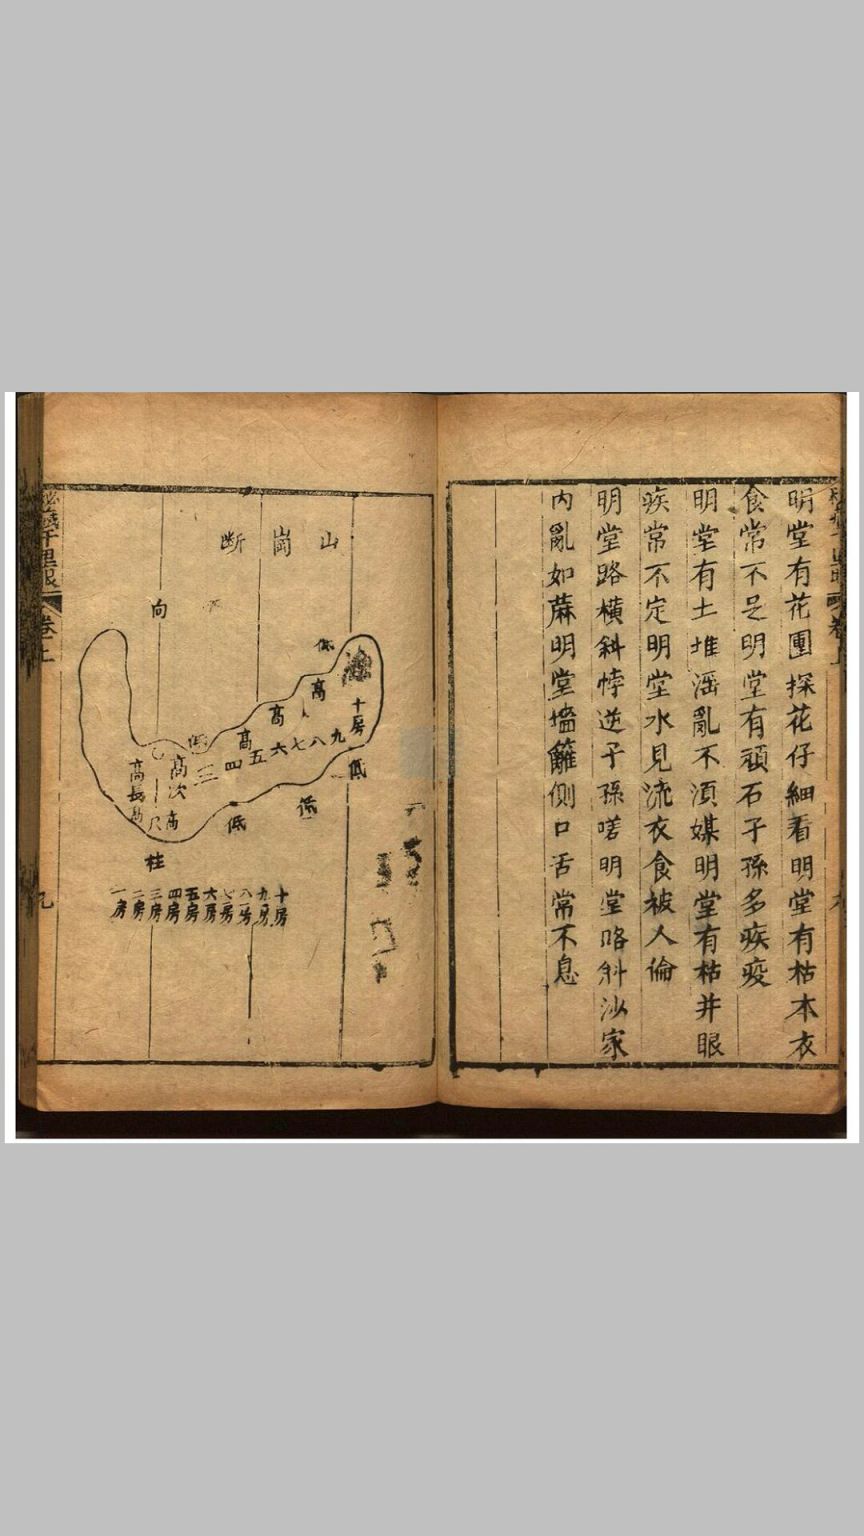 明堂有花團探花仔細看明堂有枯本衣
食常不足明堂有頑石子孫多疾疫
明堂有土堆滛亂不湏媒明堂有枯井眼
疾常不定明堂水見流衣食被人倫
明堂路横斜悖逆子孫嗟明堂路斜沙家
内亂如蔴明堂墻籬側口舌常不息
山崗断
向
低
高
高
高
十房
九
八
七
六
五
四
三
低
高次
高長房
高
低
低
低
柱
十房
九房
八房
七房
六房
五房
四房
三房
二房
一房
千里眼
卷上
九